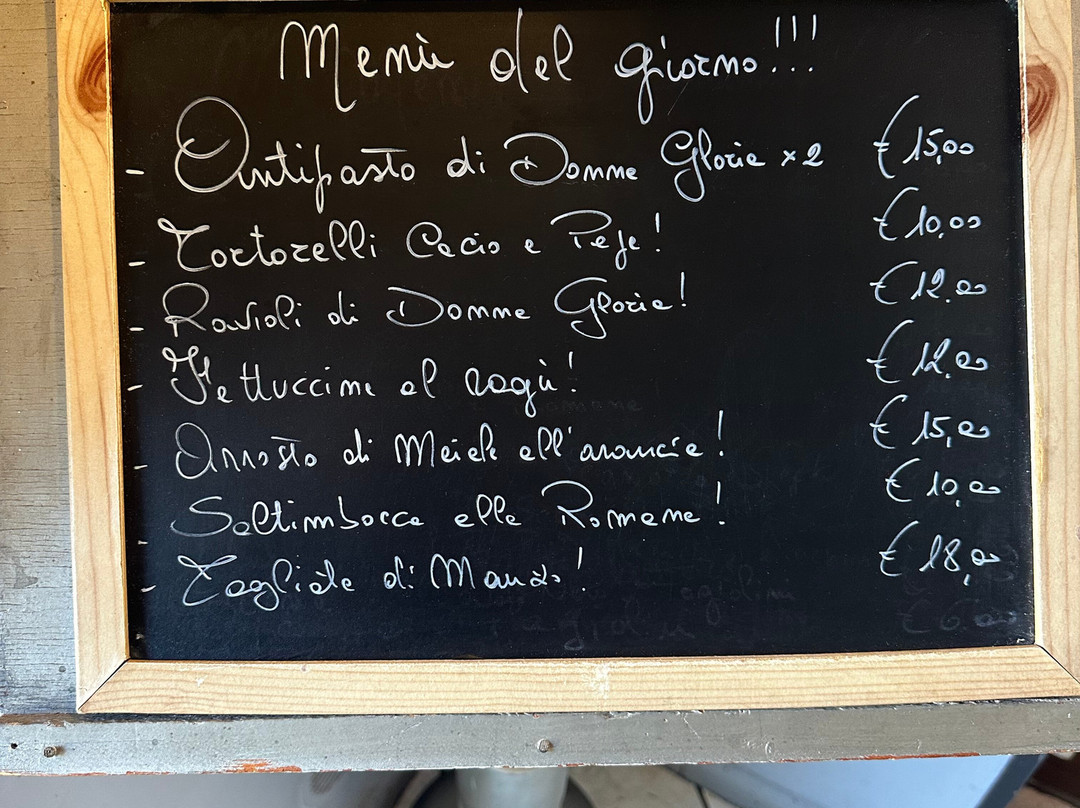 Menù del giorno!!!
- Antipasto di Donna Gloria x2 €15,00
- Tortorelli Cacio e Pepe! €10,00
- Ravioli di Donna Gloria! €12.00
- Fettuccine al ragù! €12.00
- Arrosto di Maiale all'arancia! €15,00
- Saltimbocca alla Romana! €10,00
- Tagliata di Manzo! €18,00